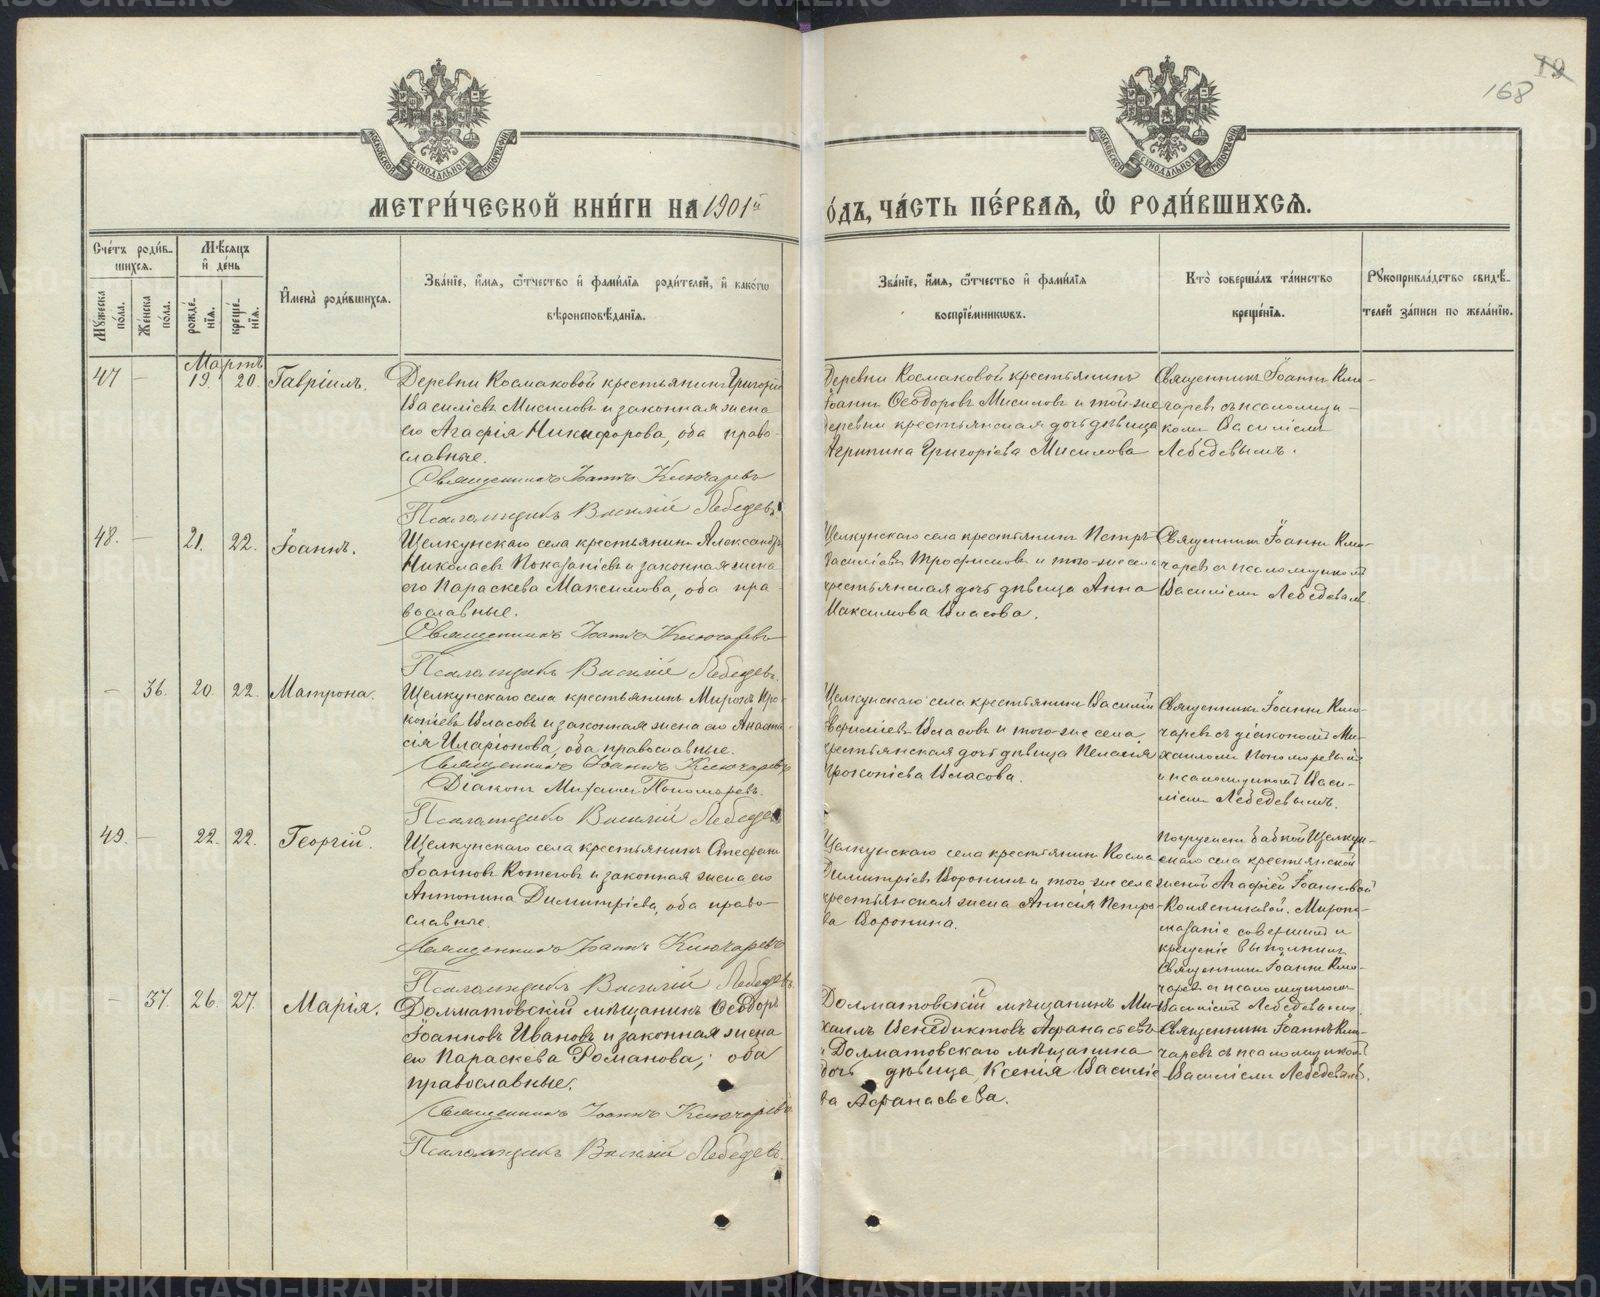 168
19
МЕТРИ́ЧЕСКОЙ КНИ́ГИ НА 1901й
О́ДЪ, ЧА́СТЬ ПЕ́РВАѦ, Ѡ РОДИ́ВШИХСѦ.
Счетъ роди́в-
шихсѧ.
Мꙋжеска по́ла.
Же́нска по́ла.
Мѣсѧцъ и де́нь
рожде́нїѧ.
креще́нїѧ.
Имена̀ роди́вшихсѧ.
Зва́нїе, и́мѧ, ѿтчество и фами́лїѧ роди́телей, и како́гѡ
вѣроисповѣ́данїѧ.
Зва́нїе, и́мѧ, ѿтчество и фами́лїѧ
воспрїе́мникѡвъ.
Кто̀ соверша́лъ та́инство
креще́нїѧ.
Рꙋкоприкла́дство свидѣ́-
телей за́писи по жела́нїю.
Мартъ
47 — 19. 20. Гавріилъ.
Деревни Космаковой крестьянинъ Григорій
Василіевъ Мисиловъ и законная жена
его Агафія Никифорова, оба право-
славные.
Священникъ Іоаннъ Ключаревъ
Псаломщикъ Василій Лебедевъ
Деревни Космаковой крестьянинъ
Іоаннъ Ѳеодоровъ Мисиловъ и той-же
деревни крестьянская дочь дѣвица
Агрипина Григоріева Мисилова
Священникъ Іоаннъ Клю-
чаревъ съ псаломщи-
комъ Василіемъ
Лебедевымъ.
48. — 21. 22. Іоаннъ.
Щелкунскаго села крестьянинъ Александръ
Николаевъ и законная жена
его Параскева Максимова, оба пра-
вославные.
Священникъ Іоаннъ Ключаревъ
Псаломщикъ Василій Лебедевъ.
Щелкунскаго села крестьянинъ Петръ
Василіевъ Трофимовъ и того-же села
крестьянская дочь дѣвица Анна
Максимова Власова.
Священникъ Іоаннъ Клю-
чаревъ съ псаломщикомъ
Василіемъ Лебедевымъ
— 36. 20. 22. Матрона.
Щелкунскаго села крестьянинъ Миронъ Про-
копіевъ Власовъ и законная жена его Анаста-
сія Иларіонова, оба православные.
Священникъ Іоаннъ Ключаревъ
Діаконъ Михаилъ Пономаревъ.
Псаломщикъ Василій Лебедевъ
Щелкунскаго села крестьянинъ Василій
Евфиміевъ Власовъ и того-же села
крестьянская дочь дѣвица Пелагія
Прокопіева Власова.
Священникъ Іоаннъ Клю-
чаревъ съ діакономъ Ми-
хаиломъ Пономаревымъ
и псаломщикомъ Васи-
ліемъ Лебедевымъ.
49. — 22. 22. Георгій.
Щелкунскаго села крестьянинъ Стефанъ
Іоанновъ Котеговъ и законная жена его
Антонина Димитріева, оба право-
славные.
Священникъ Іоаннъ Ключаревъ
Псаломщикъ Василій Лебедевъ.
Щелкунскаго села крестьянинъ Косма
Димитріевъ Воронинъ и того-же села
крестьянская жена Анисія Петро-
ва Воронина.
Погруженъ бабкой Щелкун-
скаго села крестьянской
женой Агафіей Іоанновой
Колясниковой. Миропо-
мазаніе совершилъ и
крещеніе выполнилъ
Священникъ Іоаннъ Клю-
чаревъ съ псаломщикомъ
Василіемъ Лебедевымъ.
— 37. 26. 27. Марія.
Долматовскій мѣщанинъ Ѳеодоръ
Іоанновъ Ивановъ и законная жена
его Параскева Романова, оба
православные.
Священникъ Іоаннъ Ключаревъ
Псаломщикъ Василій Лебедевъ.
Долматовскій мѣщанинъ Ми-
хаилъ Венедиктовъ Афанасьевъ
и Долматовскаго мѣщанина
дочь дѣвица Ксенія Василіе-
ва Афанасьева.
Священникъ Іоаннъ Клю-
чаревъ съ псаломщикомъ
Василіемъ Лебедевымъ.
METRIKI.GASO-URAL.RU